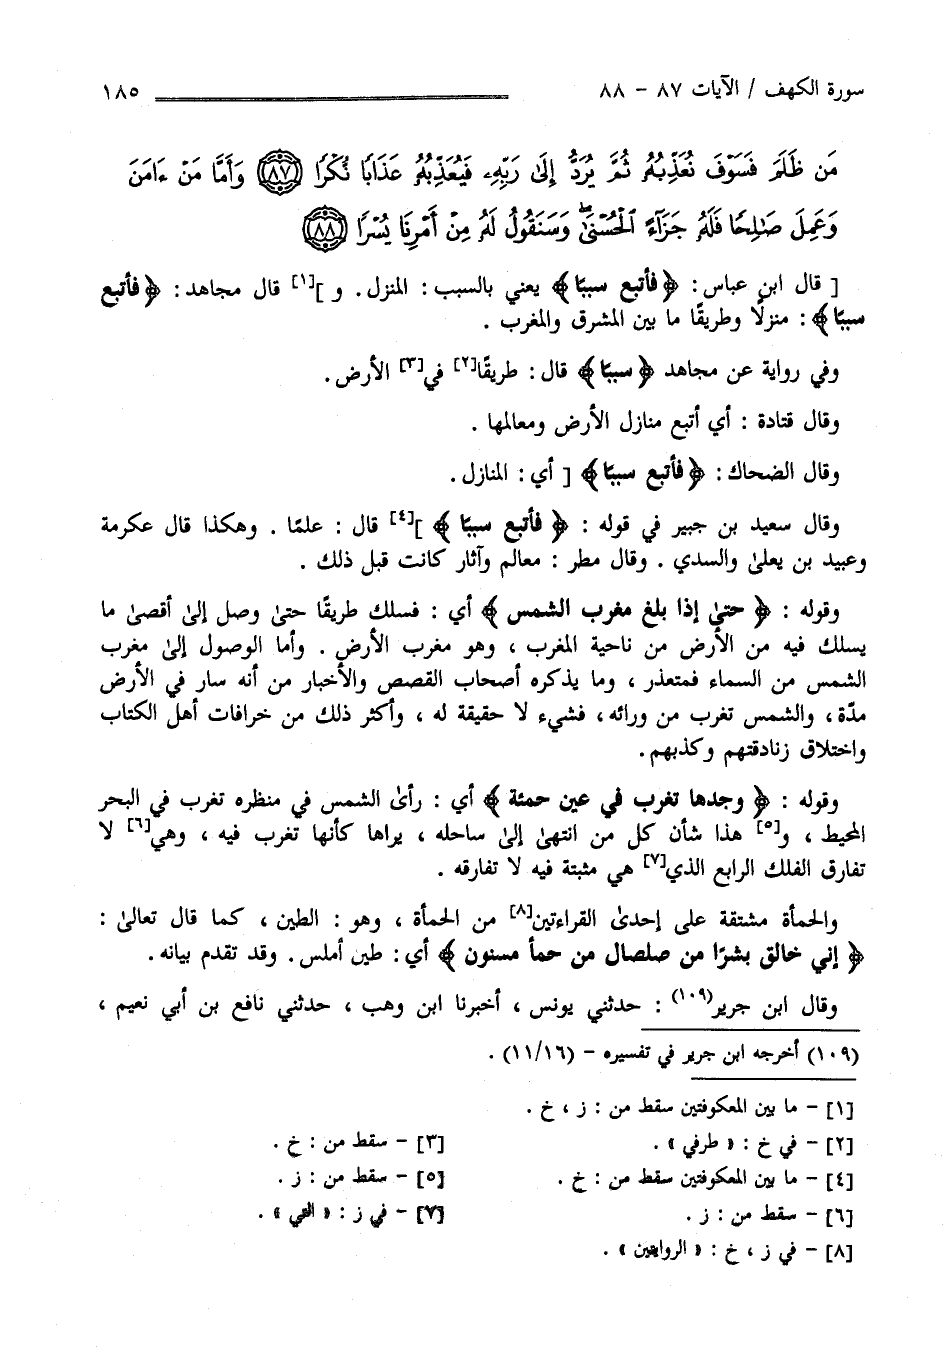 سورة الكهف / الآيات ٨٧ - ٨٨ ١٨٥
مَن ظَلَمَ فَسَوْفَ نُعَذِّبُهُۥ ثُمَّ يُرَدُّ إِلَىٰ رَبِّهِۦ فَيُعَذِّبُهُۥ عَذَابًا نُّكْرًا ﴿٨٧﴾ وَأَمَّا مَنْ ءَامَنَ
وَعَمِلَ صَـٰلِحًا فَلَهُۥ جَزَآءً ٱلْحُسْنَىٰ ۖ وَسَنَقُولُ لَهُۥ مِنْ أَمْرِنَا يُسْرًا ﴿٨٨﴾
[ قال ابن عباس : ﴿ فأتبع سببًا ﴾ يعني بالسبب : المنزل . و ][١] قال مجاهد : ﴿ فأتبع
سببًا ﴾ : منزلًا وطريقًا ما بين المشرق والمغرب .
وفي رواية عن مجاهد ﴿ سببًا ﴾ قال : طريقًا[٢] في[٣] الأرض .
وقال قتادة : أي أتبع منازل الأرض ومعالمها .
وقال الضحاك : ﴿ فأتبع سببًا ﴾ [ أي : المنازل .
وقال سعيد بن جبير في قوله : ﴿ فأتبع سببًا ﴾ ][٤] قال : علمًا . وهكذا قال عكرمة
وعبيد بن يعلىٰ والسدي . وقال مطر : معالم وآثار كانت قبل ذلك .
وقوله : ﴿ حتىٰ إذا بلغ مغرب الشمس ﴾ أي : فسلك طريقًا حتىٰ وصل إلىٰ أقصىٰ ما
يسلك فيه من الأرض من ناحية المغرب ، وهو مغرب الأرض . وأما الوصول إلىٰ مغرب
الشمس من السماء فمتعذر ، وما يذكره أصحاب القصص والأخبار من أنه سار في الأرض
مدّة ، والشمس تغرب من ورائه ، فشيء لا حقيقة له ، وأكثر ذلك من خرافات أهل الكتاب
واختلاق زنادقتهم وكذبهم .
وقوله : ﴿ وجدها تغرب في عين حمئة ﴾ أي : رأىٰ الشمس في منظره تغرب في البحر
المحيط ، و[٥] هذا شأن كل من انتهىٰ إلىٰ ساحله ، يراها كأنها تغرب فيه ، وهي[٦] لا
تفارق الفلك الرابع الذي[٧] هي مثبتة فيه لا تفارقه .
والحمأة مشتقة على إحدىٰ القراءتين[٨] من الحمأة ، وهو : الطين ، كما قال تعالىٰ :
﴿ إني خالق بشرًا من صلصال من حمأ مسنون ﴾ أي : طين أملس . وقد تقدم بيانه .
وقال ابن جرير(١٠٩) : حدثني يونس ، أخبرنا ابن وهب ، حدثني نافع بن أبي نعيم ،
(١٠٩) أخرجه ابن جرير في تفسيره - (١١/١٦) .
[١] - ما بين المعكوفتين سقط من : ز ، خ .
[٢] - في خ : « طرفي » . [٣] - سقط من : خ .
[٤] - ما بين المعكوفتين سقط من : خ . [٥] - سقط من : ز .
[٦] - سقط من : ز . [٧] - في ز : « التي » .
[٨] - في ز ، خ : « الروايتين » .